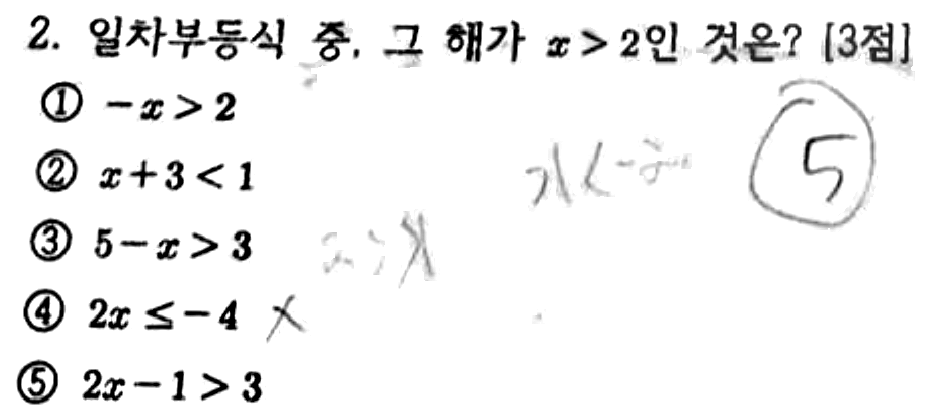 2. 일차부등식 중, 그 해가 x > 2인 것은? [3점]
① -x > 2
② x + 3 < 1
x < -2
5
③ 5 - x > 3
2 > x
④ 2x ≤ -4 ×
⑤ 2x - 1 > 3